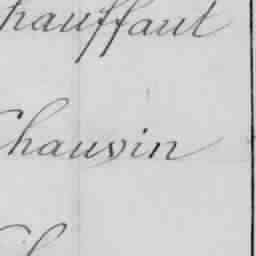 hauffaut
Chauvin